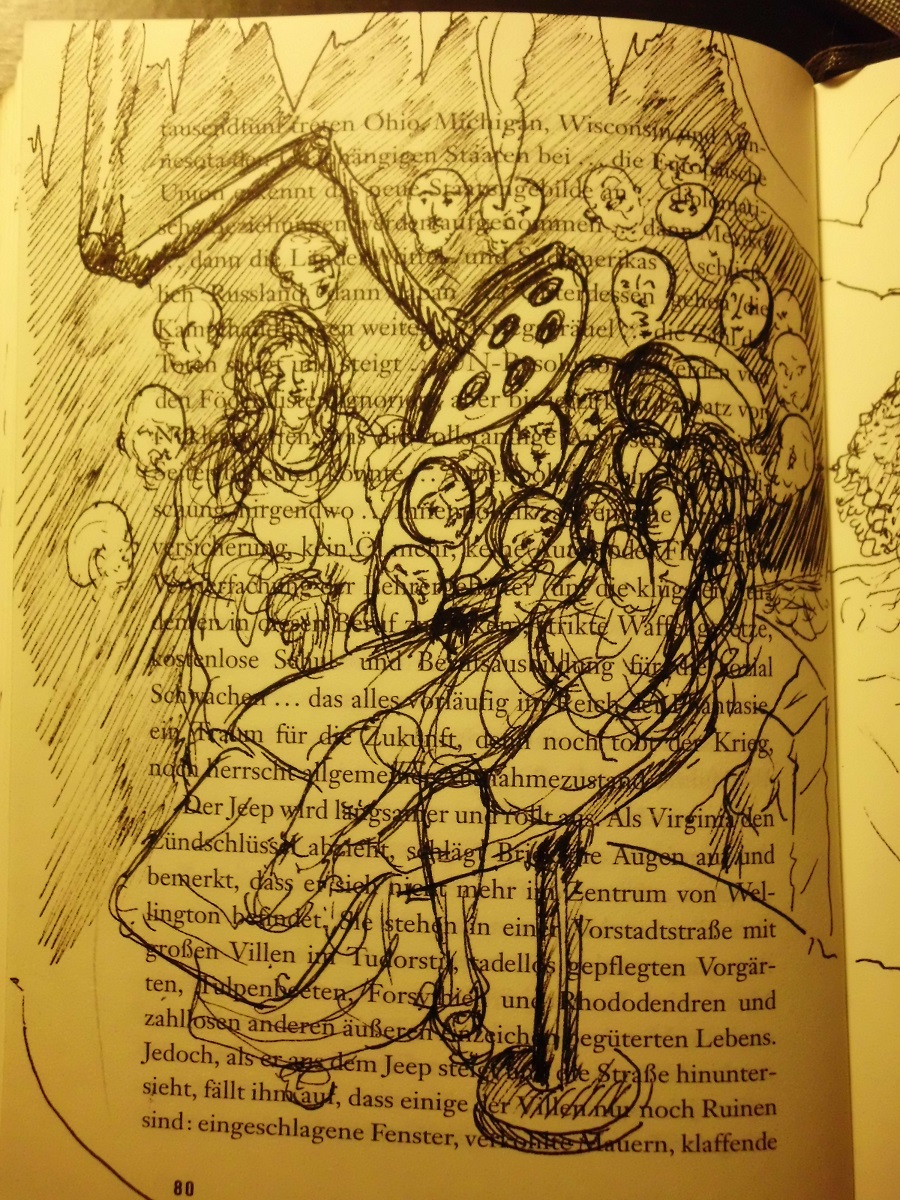 tausendfünf treten Ohio, Michigan, Wisconsin und Min-
nesota den Unabhängigen Staaten bei … die Europäische
Union erkennt das neue Staatengebilde an … diplomati-
sche Beziehungen werden aufgenommen … dann Mexiko
… dann die Länder Mittel- und Südamerikas … schließ-
lich Russland, dann Japan … unterdessen gehen die
Kampfhandlungen weiter … die Zahl der
Toten steigt und steigt … UN-Resolutionen werden von
den Föderalisten ignoriert, aber bis jetzt kein Einsatz von
Nuklearwaffen, was die vollständige
Seiten bedeuten könnte …
schung, nirgendwo … Innenpolitik:
versicherung, kein Öl mehr, keine Autos oder
Vervierfachung der Lehrergehälter (um die klügsten Stu-
denten in diesen Beruf zu locken), strikte Waffengesetze,
kostenlose Schul- und Berufsausbildung für die sozial
Schwachen … das alles vorläufig im Reich der Phantasie,
ein Traum für die Zukunft, denn noch tobt der Krieg,
noch herrscht allgemeiner Ausnahmezustand.
Der Jeep wird langsamer und rollt aus. Als Virginia den
Zündschlüssel abzieht, schlägt Brick die Augen auf und
bemerkt, dass er sich nicht mehr im Zentrum von Wel-
lington befindet. Sie stehen in einer Vorstadtstraße mit
großen Villen im Tudorstil, tadellos gepflegten Vorgär-
ten, Tulpenbeeten, Forsythien und Rhododendren und
zahllosen anderen äußeren Anzeichen begüterten Lebens.
Jedoch, als er aus dem Jeep steigt und die Straße hinunter-
sieht, fällt ihm auf, dass einige der Villen nur noch Ruinen
sind: eingeschlagene Fenster, verkohlte Mauern, klaffende
80